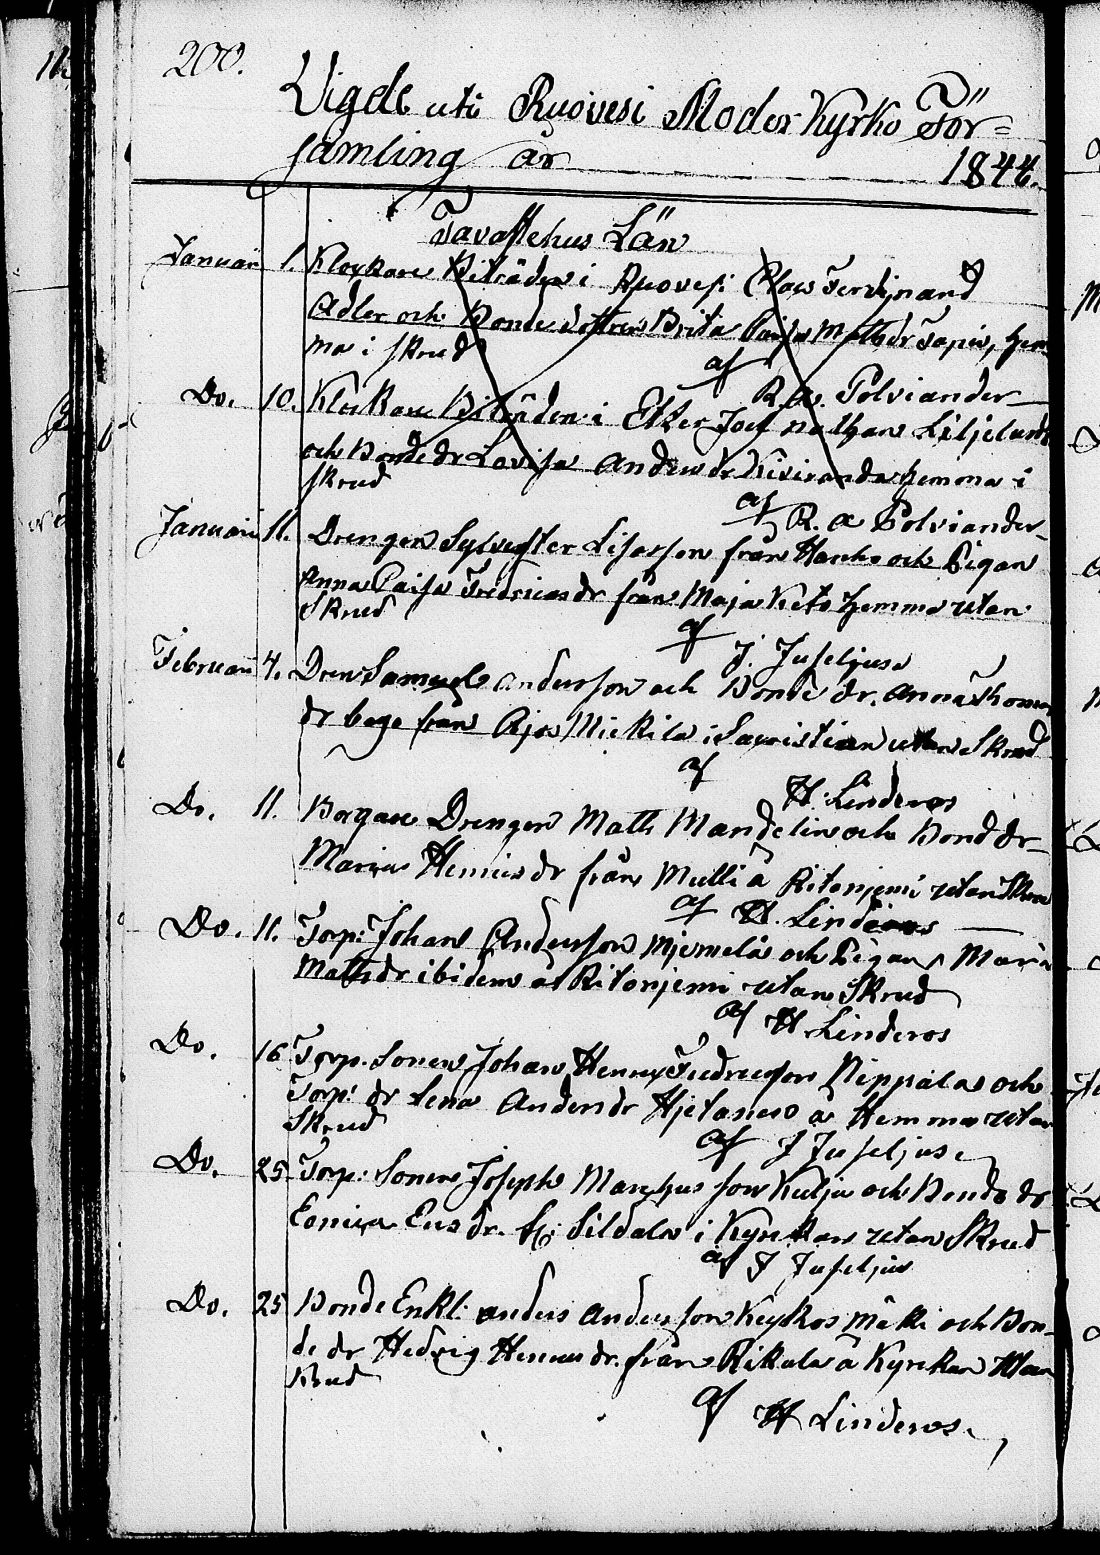 200.
Vigde uti Ruovesi Moder Kyrko För=
samling år 1844.
Tavastehus Län
Januari 1. Klockare Biträden i Ruovesi Claes Ferdinand
Adler och Bonde dottren Brita Caisa Mathsdr Tapio, hem
ma i skrud
af R. A. Polviander
Do. 10. Klockare Biträden i Etzeri Josef Nathan Liljelund
och Bonde dr Lovisa Andersdr Kiviranda hemma i
skrud
af R. A Polviander
Januari 11. Drengen Sylvester Lisasson från Hanho och Pigan
Anna Caisa Fredricsdr från Maja Keto hemma utan
Skrud
af J. Juseljus
Februari 4. Dren Samuel Andersson och Bonde dr. Anna Thomas
dr bege från Ajos Mickila i Sacristian utan Skrud
af H. Linderos
Do. 11. Borgare Drengen Math Mandelin och Bond dr
Maria Henricsdr från Multi å Ritoniemi utan Skru
af H. Linderos
Do. 11. Torp: Johan Andersson Mjemelä och Pigan Maria
Mathsdr ibidem å Ritoniemi utan Skrud
af H Linderos
Do. 16 Torp. Sonen Johan Henric Fredricsson Pippala och
Torp: dr Lena Andersdr Hjetanen å Hemma utan
Skrud
af J Juseljus
Do. 25 Torp: Sonen Joseph Marchusson Kulju och Bonde dr
Eericsdr. Sildala i Kyrckan utan Skrud
af J Juseljus
Do. 25 Bonde Enkl: Anders Andersson Keyhos mäki och Bon-
de dr Hedvig Henricsdr. från Rikala å Kyrckan utan
Skrud
af H Linderos.